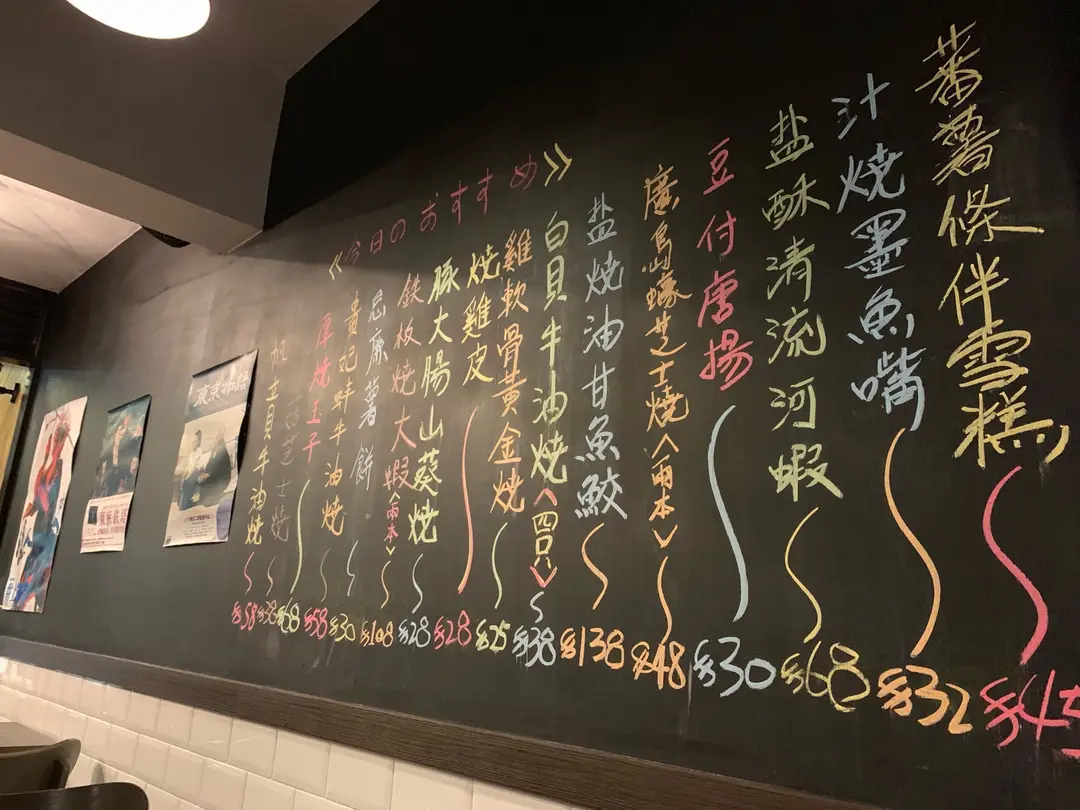 《今日のおすすめ》
蕃薯條伴雪糕 $45
汁燒墨魚嘴 $32
盐酥清流河蝦 $68
豆付唐揚 $30
廣島蠔芝士燒〈兩本〉 $48
盐燒油甘魚鮫 $138
白貝牛油燒〈四只〉 $38
雞軟骨黃金燒 $25
燒雞皮 $28
豚大腸山葵燒 $28
鉄板燒大蝦〈兩本〉 $108
忌廉薯餅 $30
貴妃蚌牛油燒 $58
厚燒玉子 $68
芝士燒 $38
帆立貝牛油燒 $58
東京物語